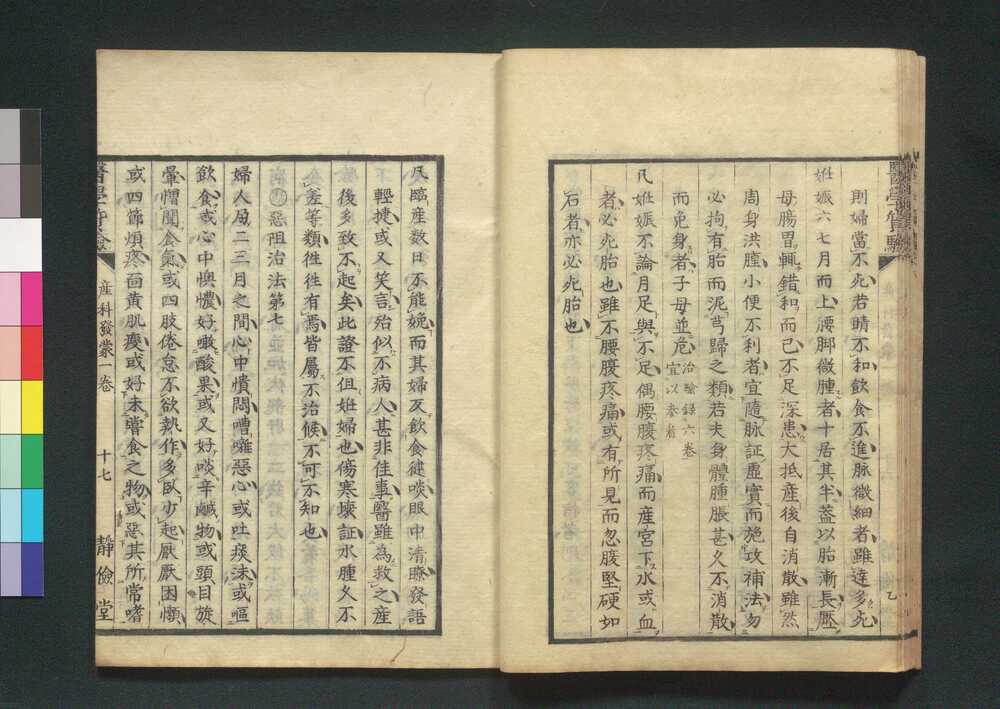 則婦當不死若晴不和飲食不進脉微細者雖達多死
妊娠六七月而上腰脚微腫者十居其半蓋以胎漸長壓
母腸胃輒錯和而已不足深患大抵産後自消散雖然
周身洪腫小便不利者宜隨脉証虛實而施攻補法勿
必拘有胎而泥芎歸之類若夫身體腫脹甚久不消散
而免身者子母並危治驗録六卷
宜以參看
凡妊娠不論月足與不足偶腰腹疼痛而産宮下水或血
者必死胎也雖不腰腹疼痛或有所見而忽腹堅硬如
石者亦必死胎也
凡臨産数日不能娩而其婦反飲食健啖眼中清瞭發語
輕捷或又笑言殆似不病人甚非佳事醫雖為救之産
後多致不起矣此證不但妊婦也傷寒壞証水腫久不
差等類徃徃有焉皆屬不治候不可不知也
惡阻治法第七
婦人凨二三月之間心中憒悶嘈囃惡心或吐痰沫或嘔
飲食或心中懊憹好噉酸果或又好啖辛鹹物或頭目旋
暈憎聞食氣或四肢倦怠不欲執作多臥少起厭厭困懶
或四節煩疼面黄肌瘦或好未嘗食之物或惡其所常嗜
醫學質驗
産科發蒙一卷
十七
靜儉堂